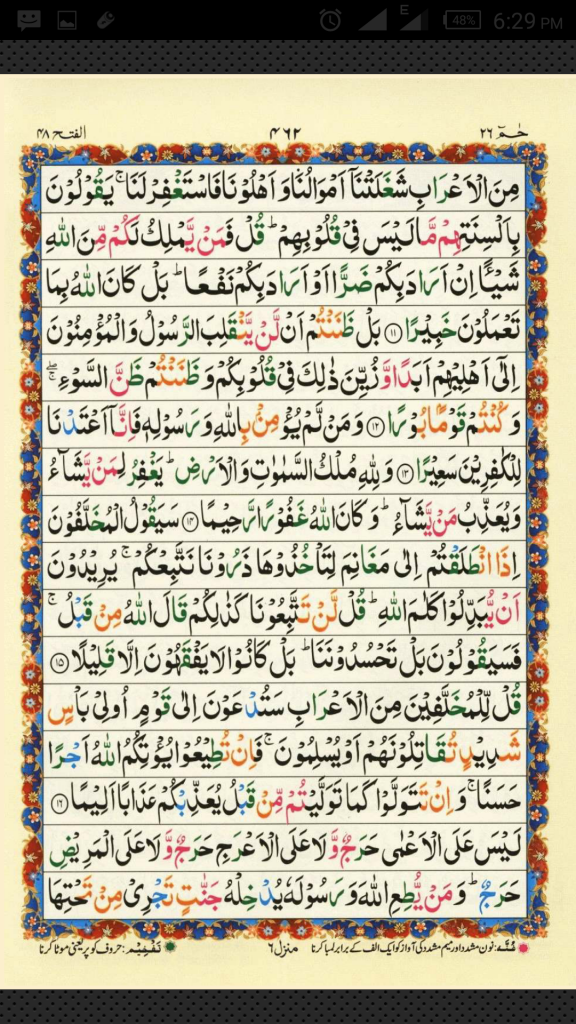 E 48% 6:29 PM
حٰمٓ ۲۶ ۴۶۲ الفتح ۴۸
مِنَ الْاَعْرَابِ شَغَلَتْنَاۤ اَمْوَالُنَا وَاَهْلُوْنَا فَاسْتَغْفِرْ لَنَا ۚ يَقُوْلُوْنَ
بِاَلْسِنَتِهِمْ مَّا لَيْسَ فِيْ قُلُوْبِهِمْ ؕ قُلْ فَمَنْ يَّمْلِكُ لَكُمْ مِّنَ اللّٰهِ
شَيْـًٔا اِنْ اَرَادَ بِكُمْ ضَرًّا اَوْ اَرَادَ بِكُمْ نَفْعًا ؕ بَلْ كَانَ اللّٰهُ بِمَا
تَعْمَلُوْنَ خَبِيْرًا ۝۱۱ بَلْ ظَنَنْتُمْ اَنْ لَّنْ يَّنْقَلِبَ الرَّسُوْلُ وَالْمُؤْمِنُوْنَ
اِلٰۤى اَهْلِيْهِمْ اَبَدًا وَّزُيِّنَ ذٰلِكَ فِيْ قُلُوْبِكُمْ وَظَنَنْتُمْ ظَنَّ السَّوْءِ ۖۚ
وَكُنْتُمْ قَوْمًۢا بُوْرًا ۝۱۲ وَمَنْ لَّمْ يُؤْمِنْۢ بِاللّٰهِ وَرَسُوْلِهٖ فَاِنَّاۤ اَعْتَدْنَا
لِلْكٰفِرِيْنَ سَعِيْرًا ۝۱۳ وَلِلّٰهِ مُلْكُ السَّمٰوٰتِ وَالْاَرْضِ ؕ يَغْفِرُ لِمَنْ يَّشَآءُ
وَيُعَذِّبُ مَنْ يَّشَآءُ ؕ وَكَانَ اللّٰهُ غَفُوْرًا رَّحِيْمًا ۝۱۴ سَيَقُوْلُ الْمُخَلَّفُوْنَ
اِذَا انْطَلَقْتُمْ اِلٰى مَغَانِمَ لِتَاْخُذُوْهَا ذَرُوْنَا نَتَّبِعْكُمْ ۚ يُرِيْدُوْنَ
اَنْ يُّبَدِّلُوْا كَلٰمَ اللّٰهِ ؕ قُلْ لَّنْ تَتَّبِعُوْنَا كَذٰلِكُمْ قَالَ اللّٰهُ مِنْ قَبْلُ ۚ
فَسَيَقُوْلُوْنَ بَلْ تَحْسُدُوْنَنَا ؕ بَلْ كَانُوْا لَا يَفْقَهُوْنَ اِلَّا قَلِيْلًا ۝۱۵
قُلْ لِّلْمُخَلَّفِيْنَ مِنَ الْاَعْرَابِ سَتُدْعَوْنَ اِلٰى قَوْمٍ اُولِيْ بَاْسٍ
شَدِيْدٍ تُقَاتِلُوْنَهُمْ اَوْ يُسْلِمُوْنَ ۚ فَاِنْ تُطِيْعُوْا يُؤْتِكُمُ اللّٰهُ اَجْرًا
حَسَنًا ۚ وَاِنْ تَتَوَلَّوْا كَمَا تَوَلَّيْتُمْ مِّنْ قَبْلُ يُعَذِّبْكُمْ عَذَابًا اَلِيْمًا ۝۱۶
لَيْسَ عَلَى الْاَعْمٰى حَرَجٌ وَّلَا عَلَى الْاَعْرَجِ حَرَجٌ وَّلَا عَلَى الْمَرِيْضِ
حَرَجٌ ؕ وَمَنْ يُّطِعِ اللّٰهَ وَرَسُوْلَهٗ يُدْخِلْهُ جَنّٰتٍ تَجْرِيْ مِنْ تَحْتِهَا
غُنَّہ: نون مشدد اور میم مشدد کی آواز کو ایک الف کے برابر لمبا کرنا منزل ۶ تَفخِیم: حروف کو پُر یعنی موٹا کرنا